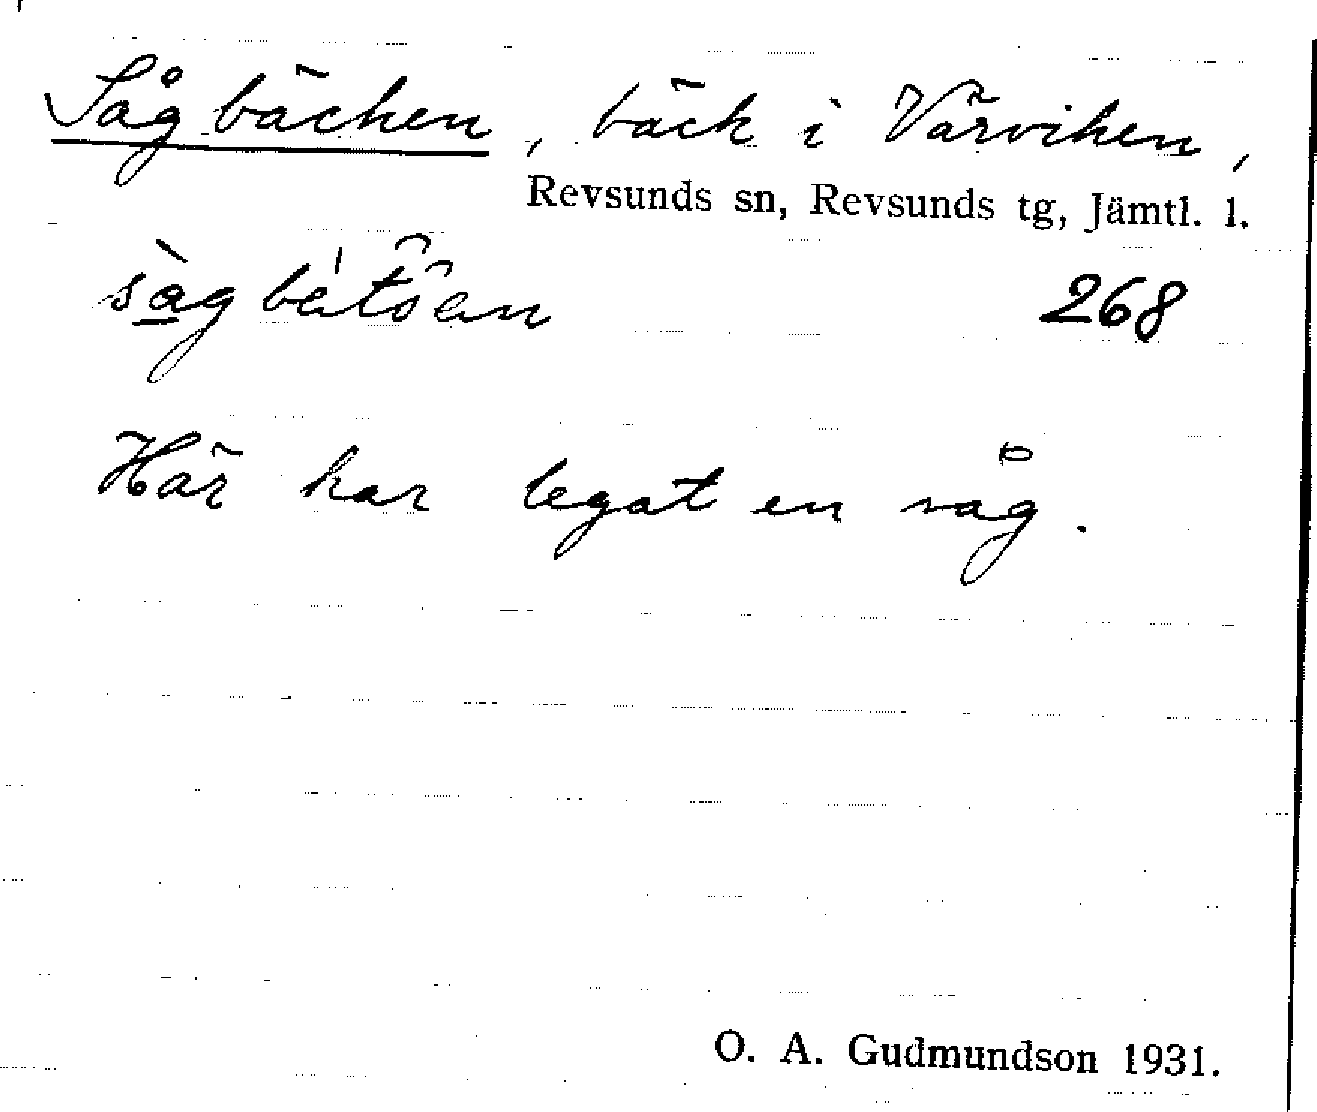 Sågbäcken, bäck i Värviken,
Revsunds sn, Revsunds tg, Jämtl. l.
268
Här har legat en såg.
O. A. Gudmundson 1931.